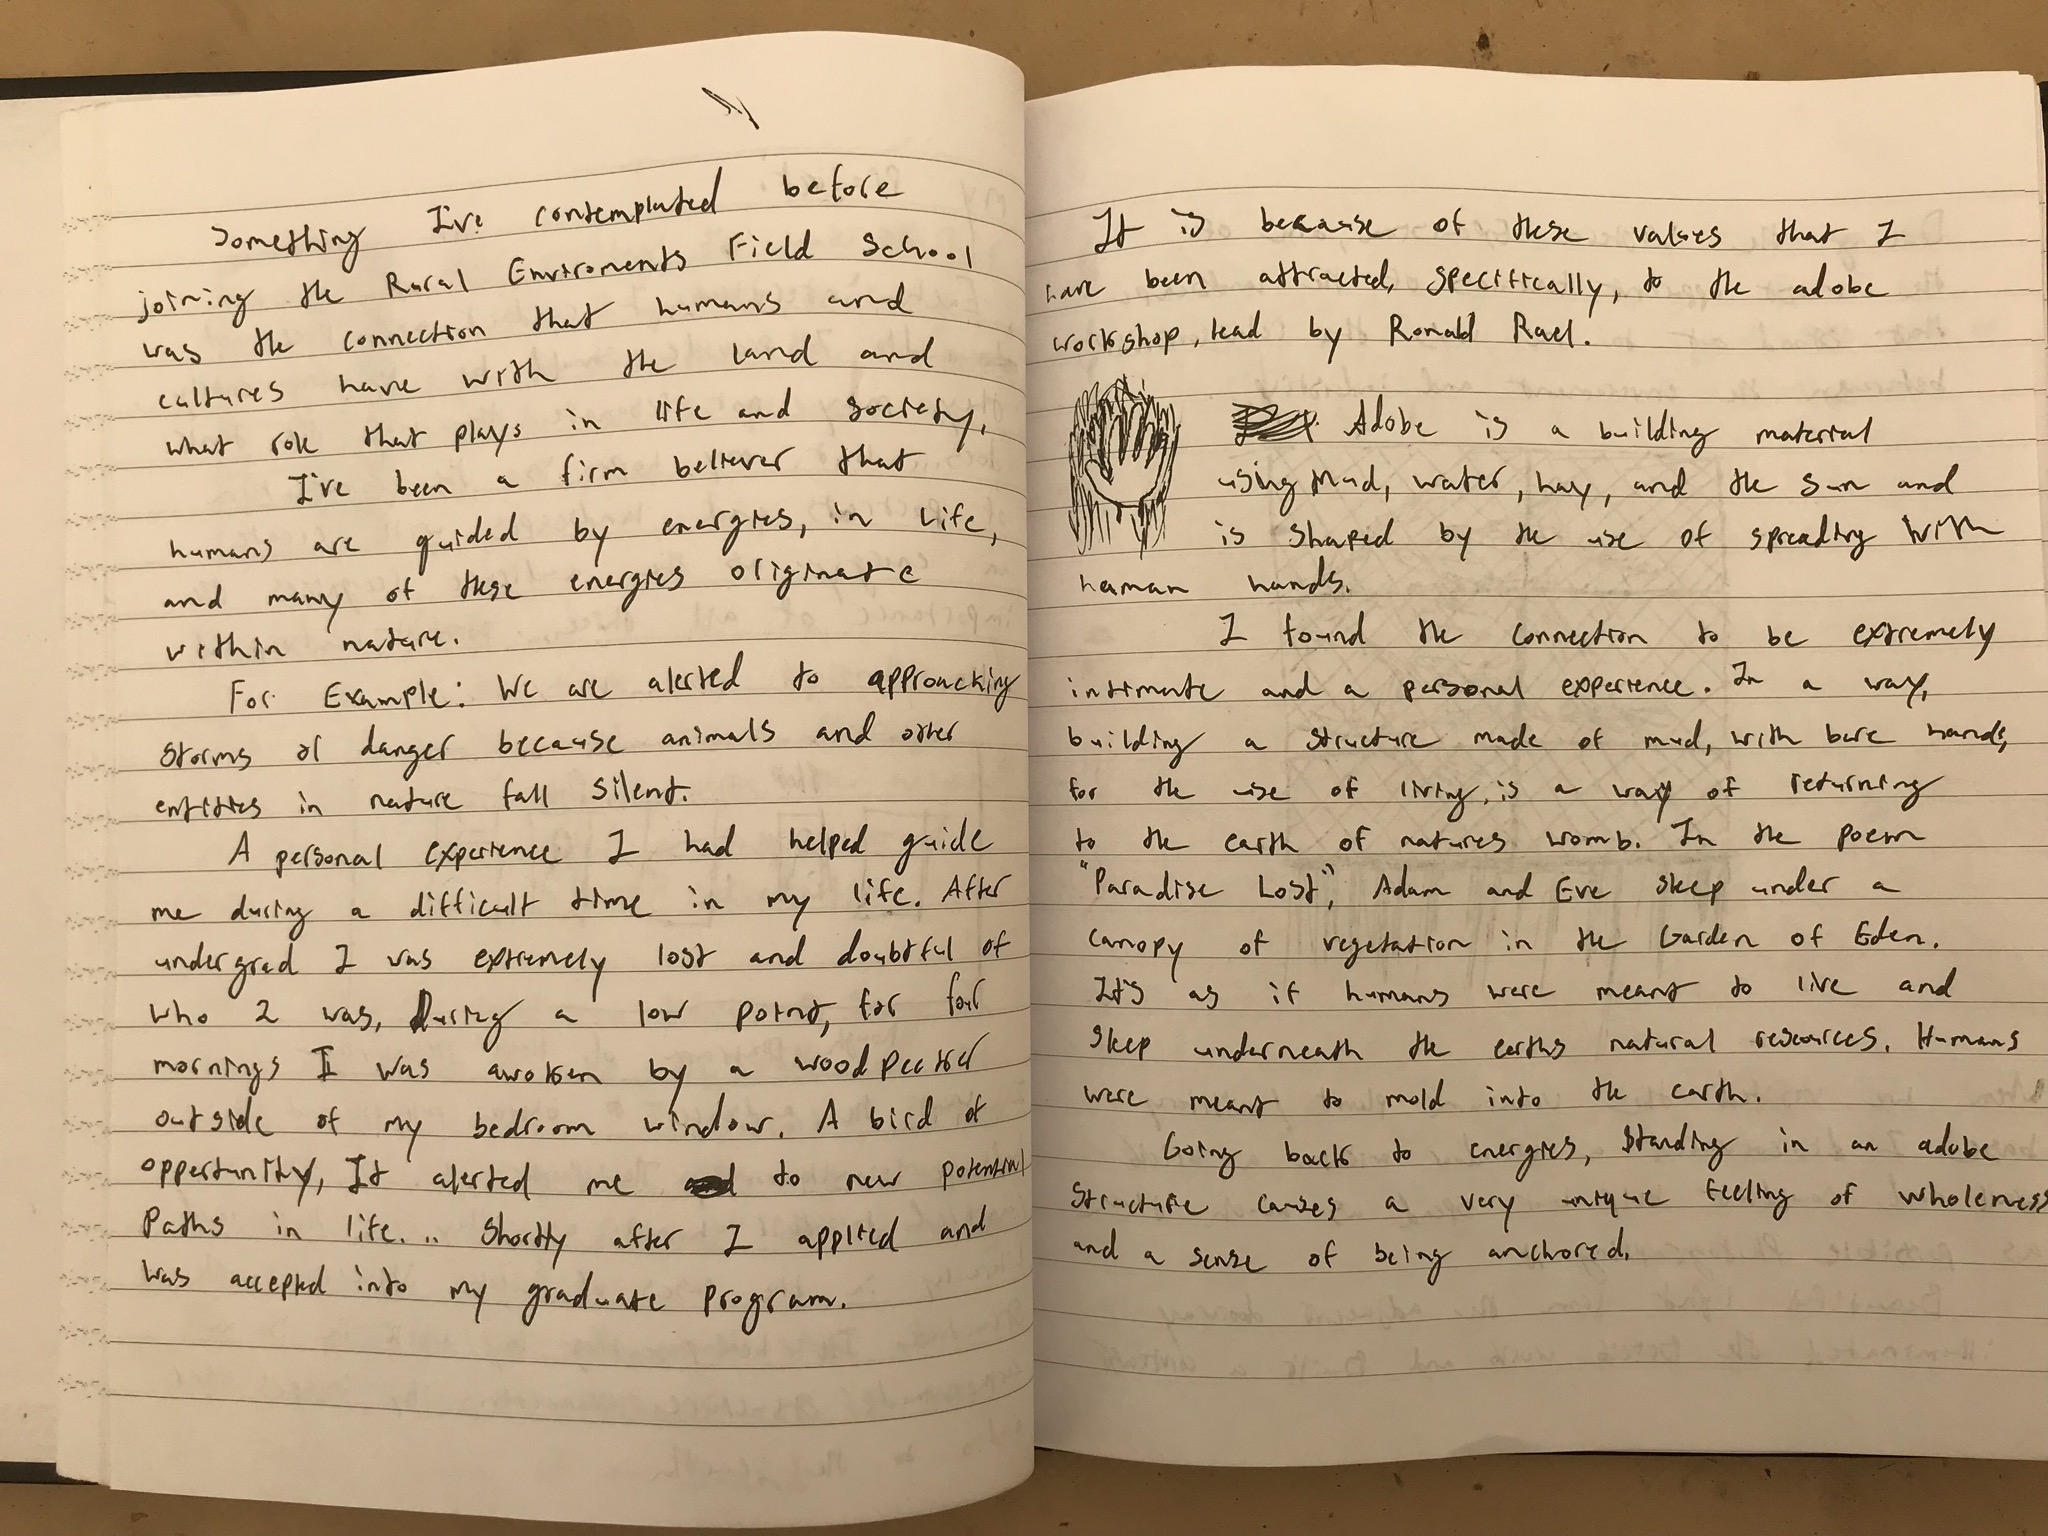 Something I've contemplated before
joining the Rural Enviroments Field School
was the connection that humans and
cultures have with the land and
what role that plays in life and society.
I've been a firm believer that
humans are guided by energies, in life,
and many of these energies originate
within nature.
For Example: We are alerted to approacking
storms or danger because animals and other
entities in nature fall silent.
A personal experience I had helped guide
me during a difficult time in my life. After
undergrad I was extremely lost and doubtful of
who I was. During a low point, for four
mornings I was awoken by a woodpecker
outside of my bedroom window. A bird of
oppertunity, It alerted me to new potential
Paths in life... Shortly after I applied and
was accepted into my graduate program.
It is because of these values that I
have been attracted, specifically, to the adobe
workshop, lead by Ronald Rael.
Adobe is a building material
using Mud, water, hay, and the sun and
is shaped by the use of spreading with
human hands.
I found the connection to be extremely
intimate and a personal experience. In a way,
building a structure made of mud, with bare hands,
for the use of living, is a way of returning
to the earth of natures womb. In the poem
"Paradise Lost", Adam and Eve sleep under a
canopy of vegetation in the Garden of Eden.
It's as if humans were meant to live and
sleep underneath the earths natural resources. Humans
were meant to mold into the earth.
Going back to energies, standing in an adobe
structure causes a very unique feeling of wholeness
and a sense of being anchored.